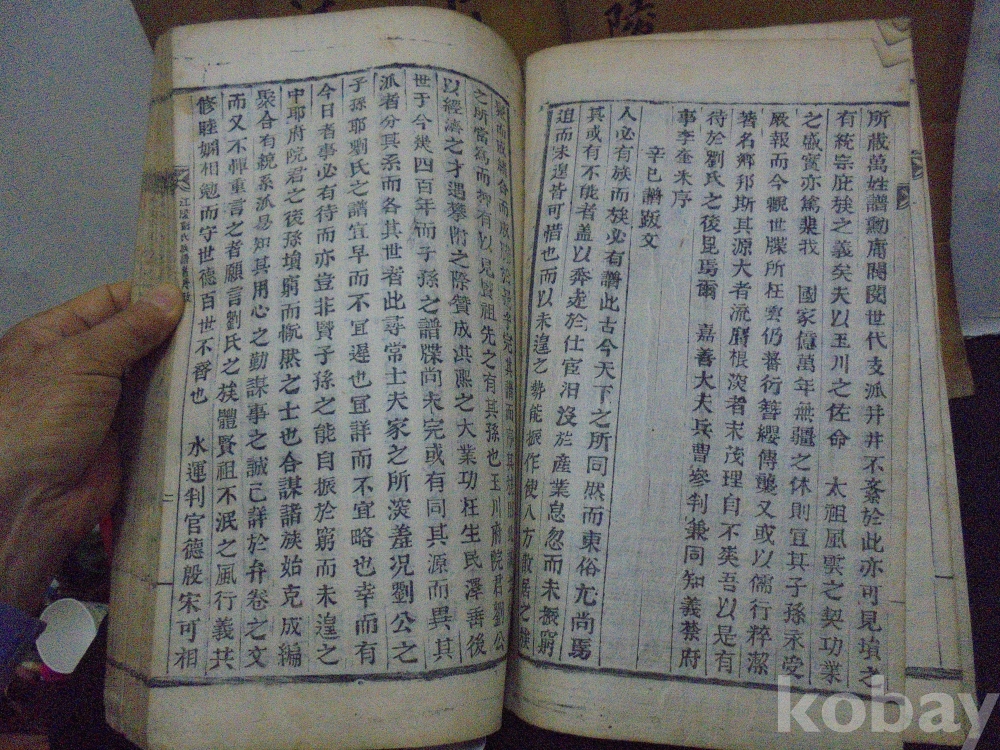 陵
所蕆萬姓譜勳庸閥閱世代支派井井不紊於此亦可見墳之
有統宗庇族之義矣夫以玉川之佐命 太祖風雲之契功業
之盛實亦篤棐我 國家億萬年無疆之休則宜其子孫永受
厥報而今觀世牒所枉雲仍蕃衍簪纓傳襲又或以儒行稡潔
著名鄉邦斯其源大者流麿根深者末茂理自不爽吾以是有
待於劉氏之後見焉爾 嘉善大夫兵曹參判兼同知義禁府
事李奎朱序
辛巳譜跋文
人必有族而族必有譜此古今天下之所同然而東俗尤尚焉
其或有不能者盖以奔走於仕宦汨沒於產業息忽而未振窮
徂而未遑皆可惜也而以未遑之勢能振作使八方散居之
之所當爲而抑有以見賢祖先之有其孫也玉川府院君劉公
以經濟之才遇攀附之際贊成洪熈之大業功枉生民澤垂後
世于今幾四百年而子孫之譜牒尚未完或有同其源而異其
派者分其系而各其世者此尋常士夫家之所深羞况劉公之
子孫耶劉氏之譜宜早而不宜遲也冝詳而不宜略也幸而有
今日者事必有待而亦豈非賢子孫之能自振於窮而未遑之
中耶府院君之後孫墳窮而慨然之士也合謀諸族始克成編
聚合有統系派易知其用心之勤謀事之誠已詳於弁卷之文
而又不憚重言之者願言劉氏之族體賢祖不泯之風行義共
修睦婣相勉而守世德百世不替也 水運判官德殷宋可相
二
kobay